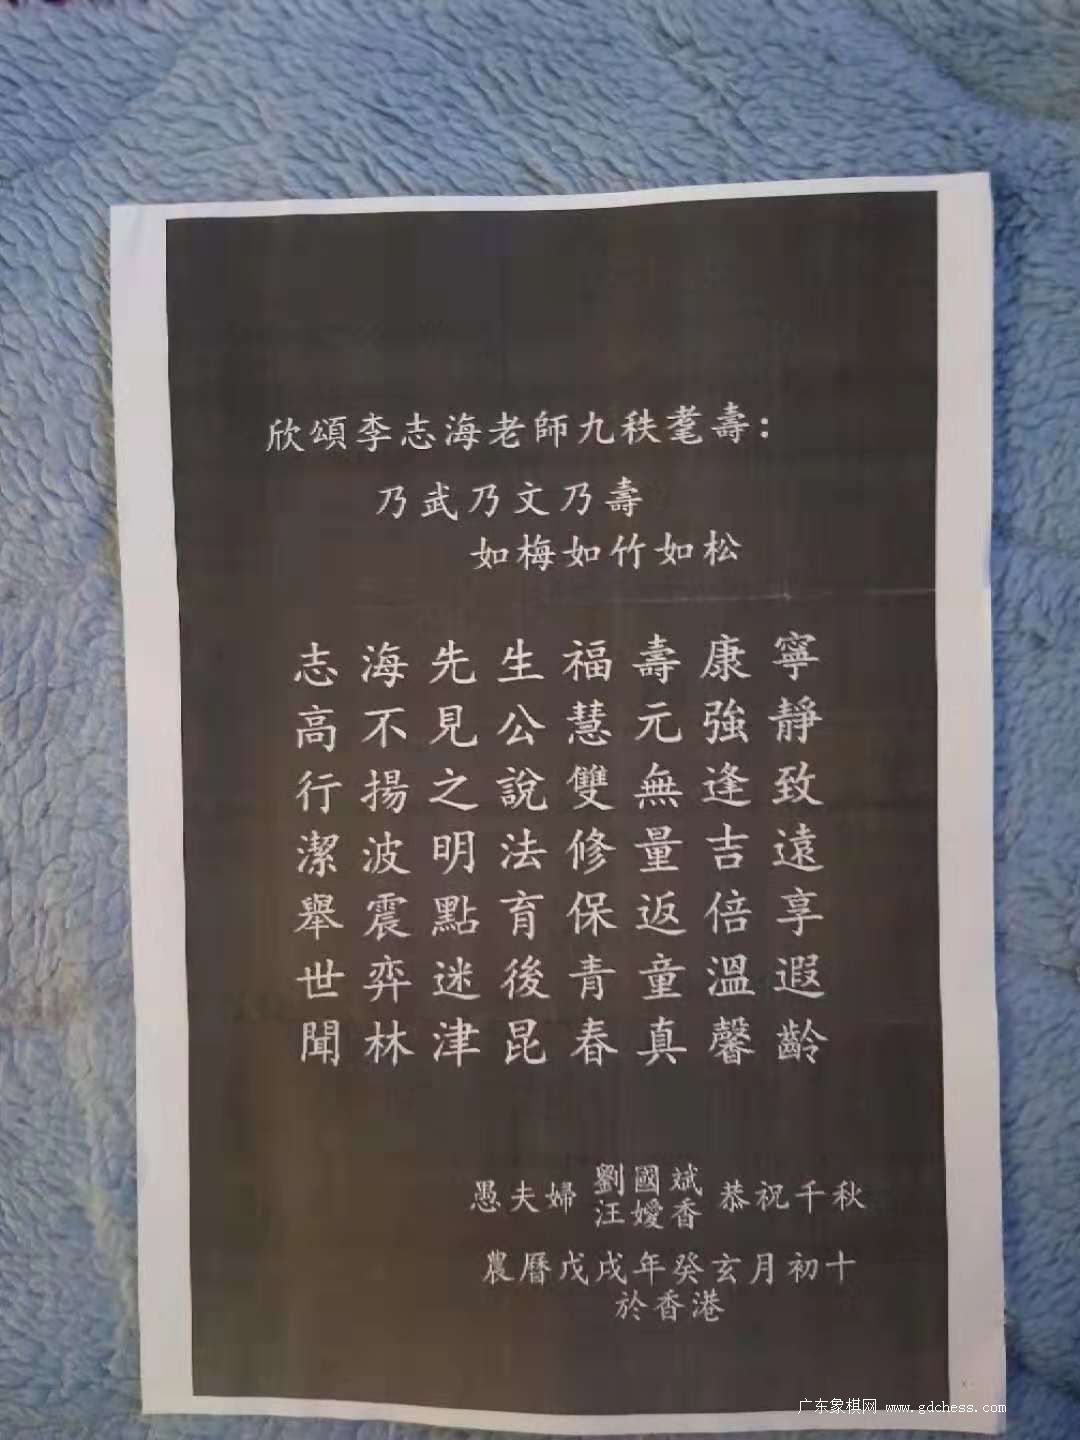 欣頌李志海老師九秩耄壽：
乃武乃文乃壽
如梅如竹如松
志高行潔舉世聞
海不揚波震弈林
先見之明點迷津
生公說法育後昆
福慧雙修保青春
壽元無量返童真
康強逢吉倍溫馨
寧靜致遠享遐齡
愚夫婦 劉國斌 汪嬡香 恭祝千秋
農曆戊戌年癸玄月初十
於香港
广东象棋网 www.gdchess.com